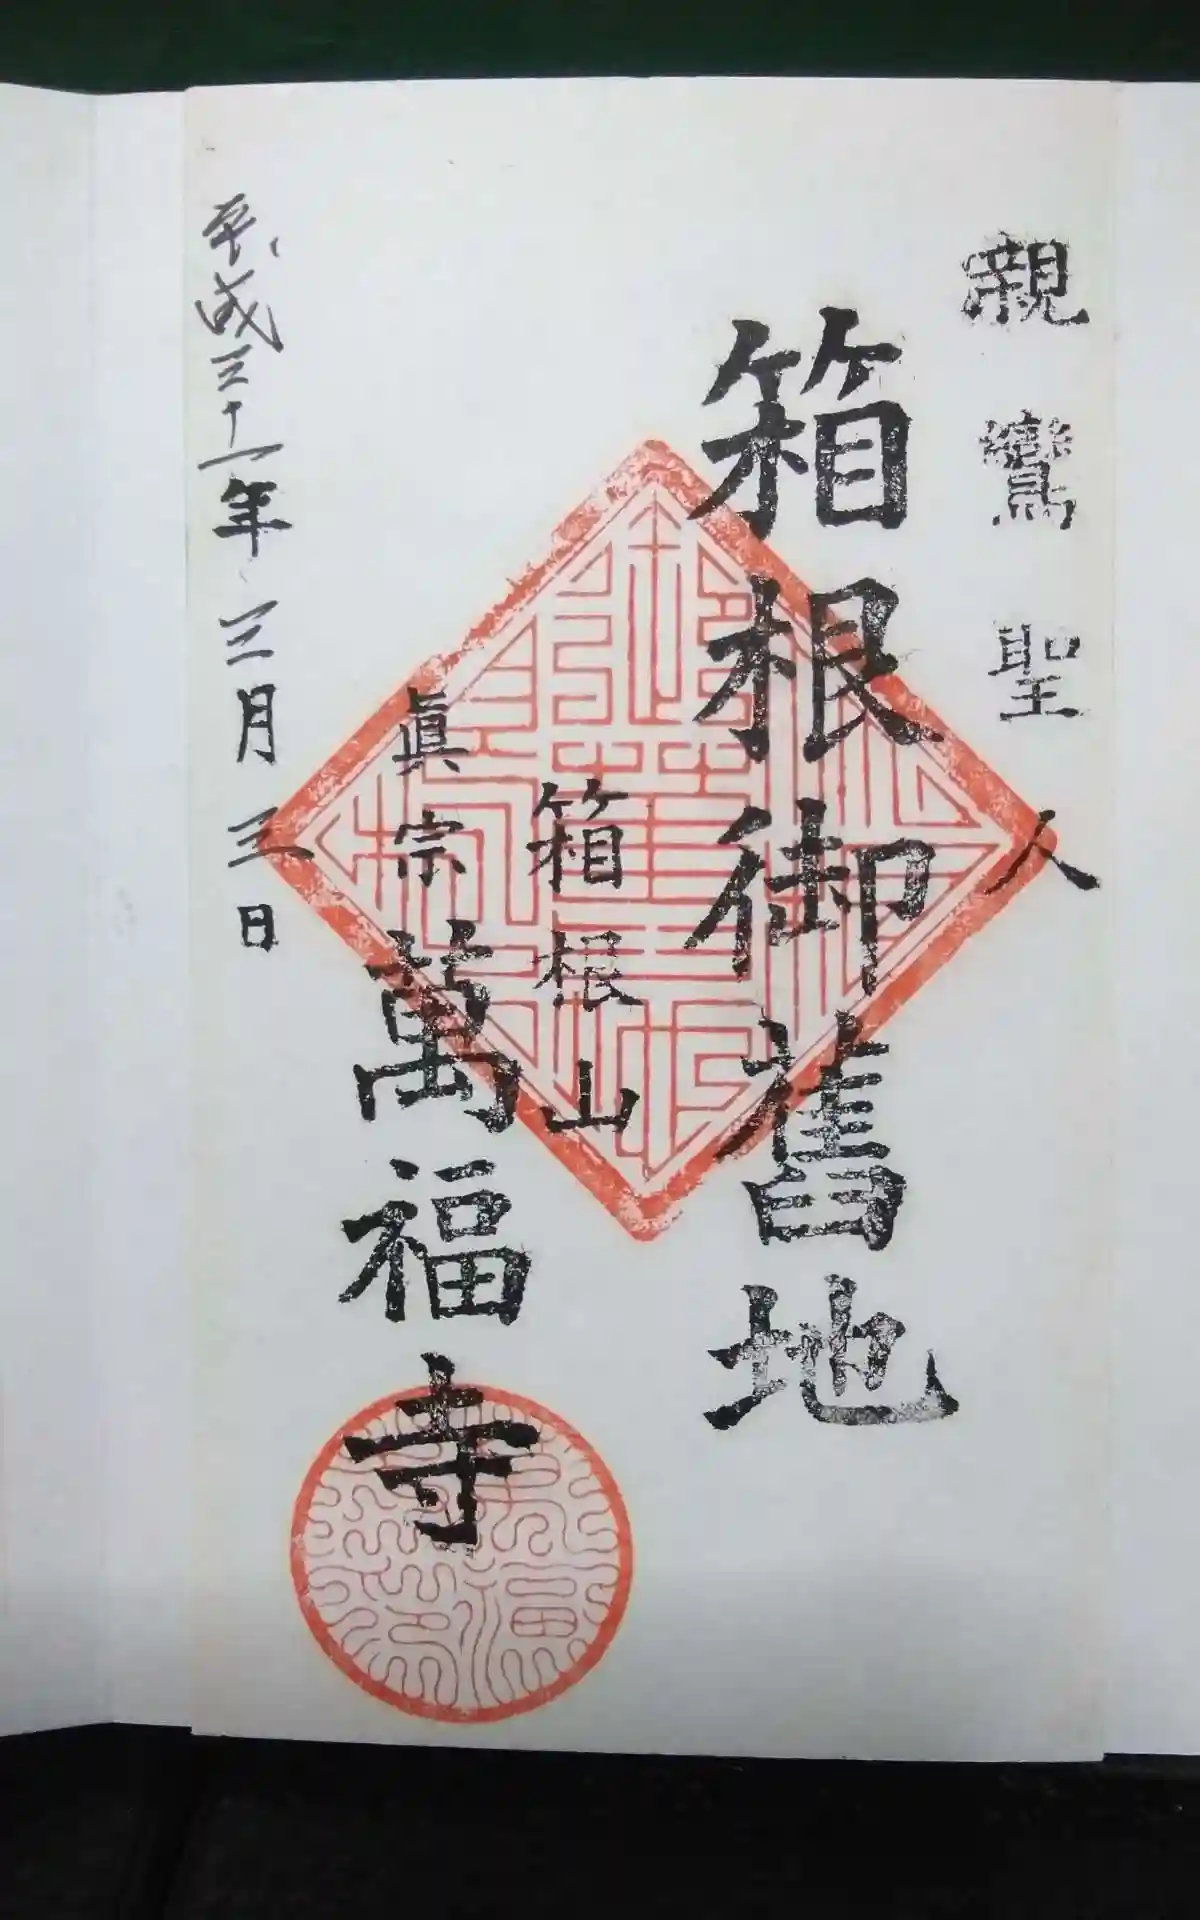 親鸞聖人
箱根御舊地
箱根山
眞宗
萬福寺
平成三十一年三月三日